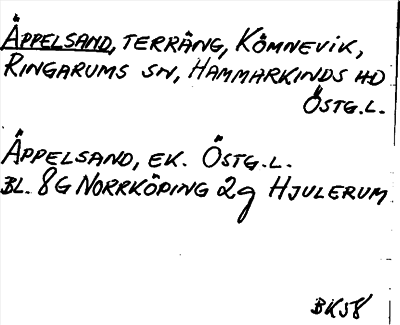 Äppelsand, terräng, Kömnevik,
Ringarums sn, Hammarkinds hd
Östg.l.
Äppelsand, ek. Östg.l.
Bl. 8G Norrköping 2g Hjulerum
BK58